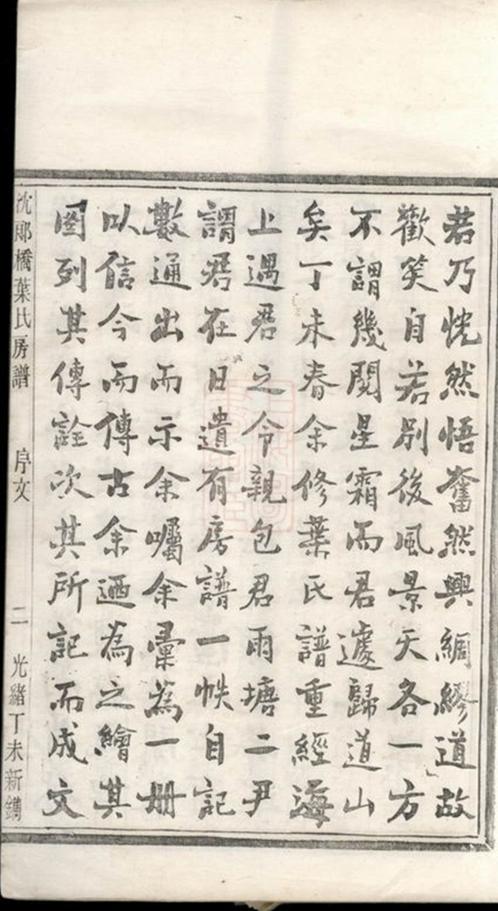 若乃恍然悟奮然興綢繆道故
歡笑自若別後風景天各一方
不謂幾閱星霜而君遽歸道山
矣丁未春余修葉氏譜重經海
上遇君之令親包君雨塘二尹
謂君在日遺有房譜一帙自記
數通出而示余囑余彙為一冊
以信今而傳古余迺為之繪其
圖列其傳詮次其所記而成文
沈郎橋葉氏房譜 序文 二 光緒丁未新鐫